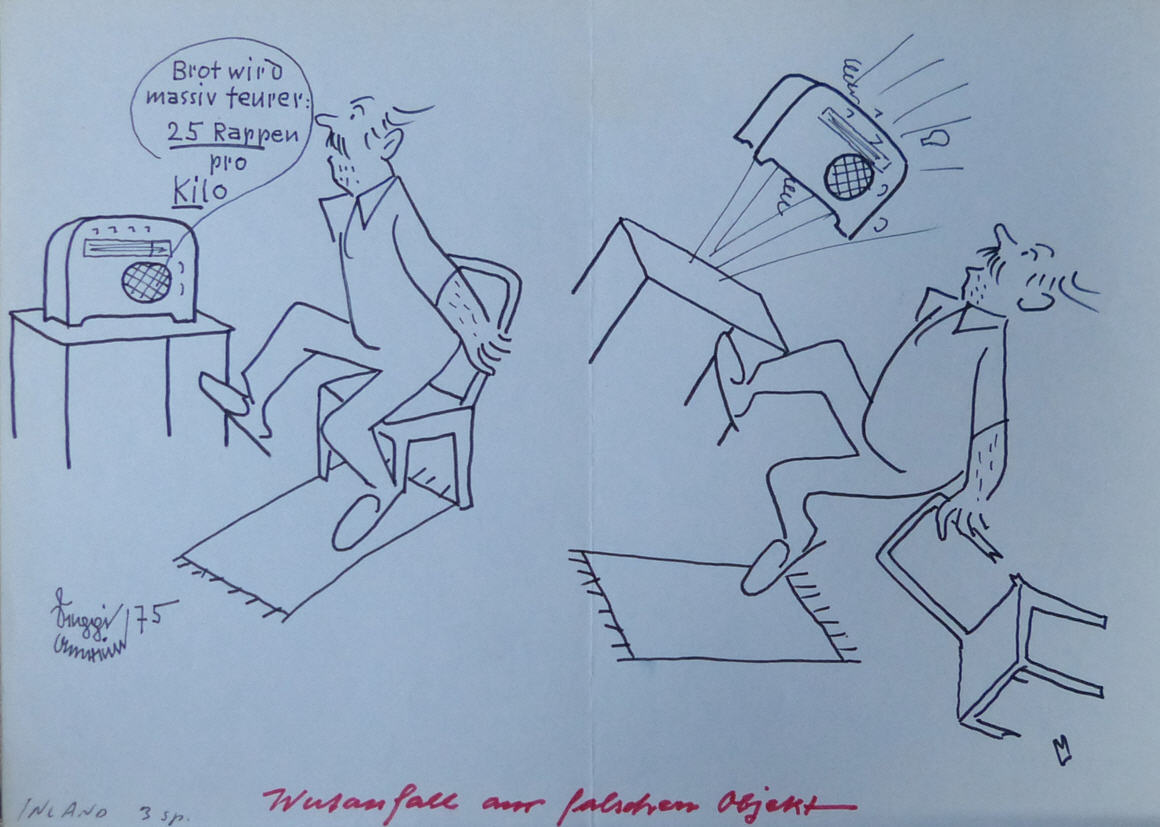 Brot wird
massiv teurer:
25 Rappen
pro
Kilo
/75
Wutanfall am falschen Objekt
INLAND 3 sp.